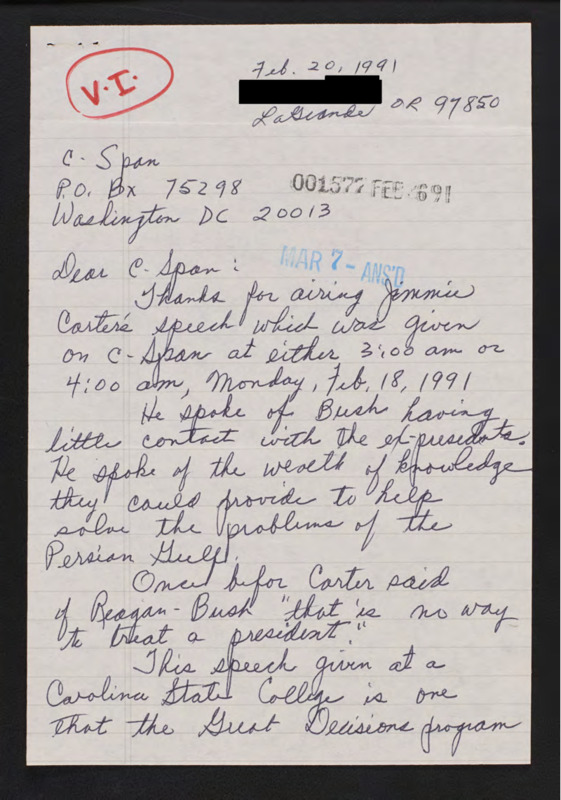 Feb. 20, 1991
V.I.
LaGrande OR 97850
C-Span
P.O. Bx 75298
001577 FEB 26 91
Washington DC 20013
MAR 7 - ANS'D
Dear C-Span:
Thanks for airing Jimmie
Carter's speech which was given
on C-Span at either 3:00 am or
4:00 am, Monday, Feb, 18, 1991
He spoke of Bush having
little contact with the ex-presidents.
He spoke of the wealth of knowledge
they could provide to help
solve the problems of the
Persian Gulf.
Once befor Carter said
of Reagan-Bush "that is no way
to treat a president."
This speech given at a
Carolina State College is one
that the Great Decisions program